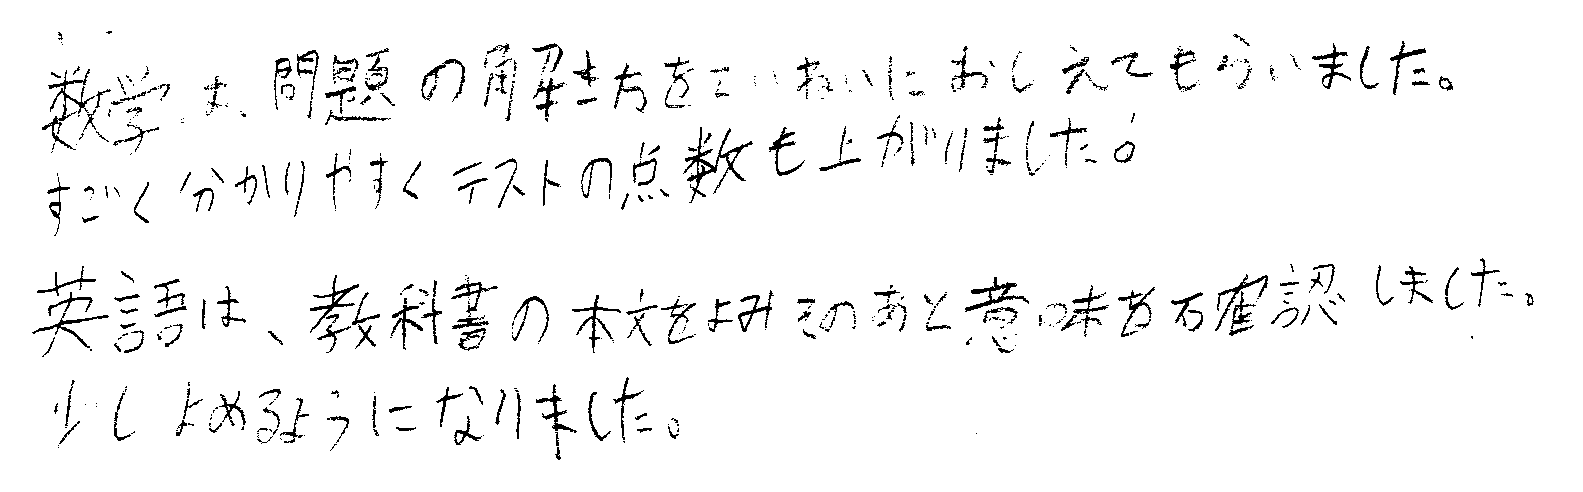 数学は、問題の解き方をていねいにおしえてもらいました。
すごく分かりやすくテストの点数も上がりました。
英語は、教科書の本文をよみそのあと意味を確認しました。
少しよめるようになりました。